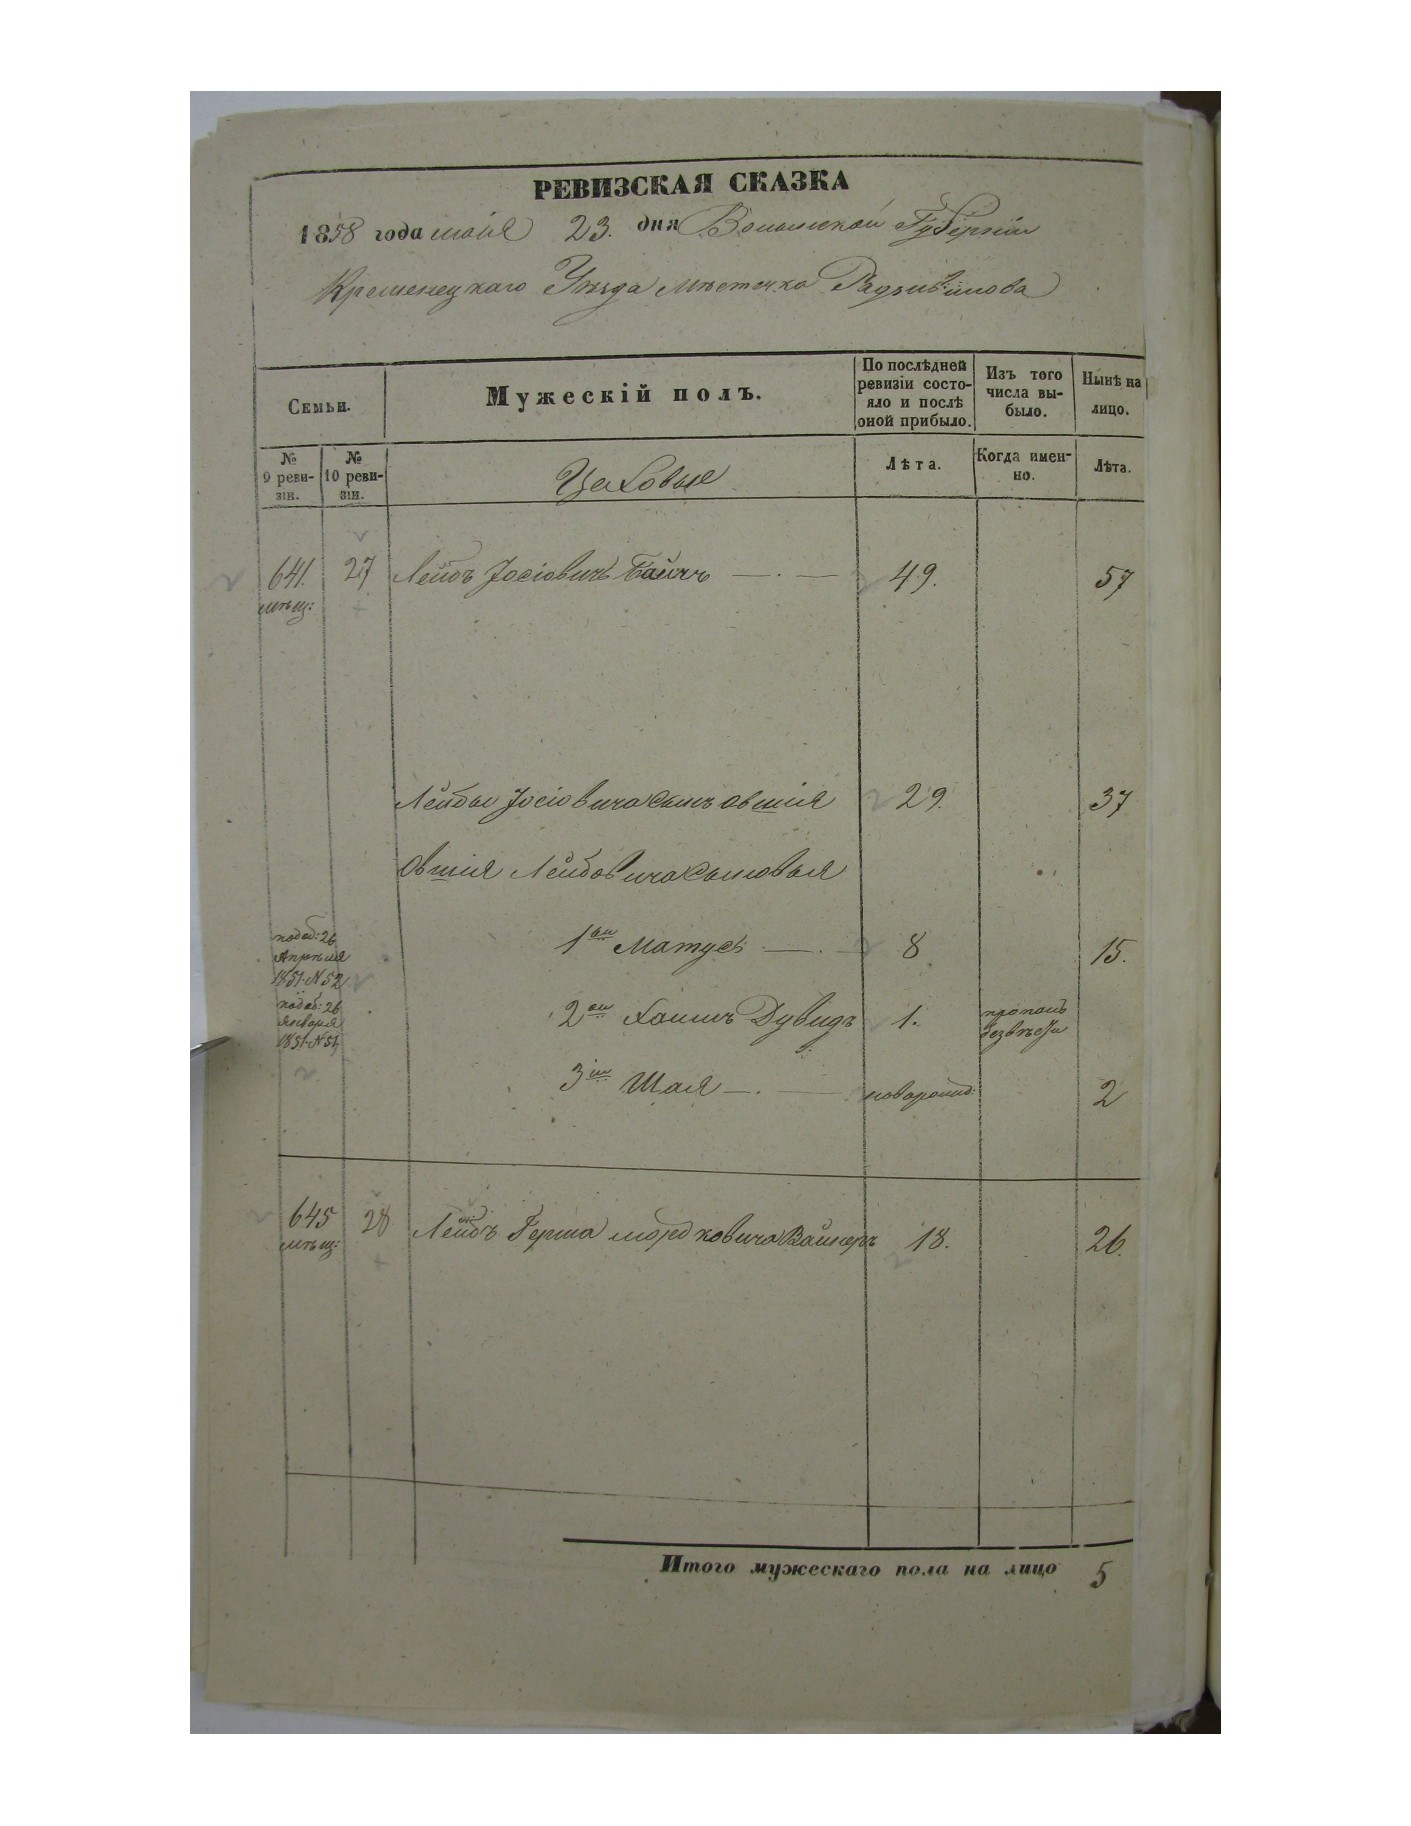 РЕВИЗСКАЯ СКАЗКА
1858 года маія 23. дня Волынской Губерніи
Кременецкаго Уѣзда мѣстечка Радзивилова
Семьи.
Мужескій полъ.
По послѣдней ревизіи состояло и послѣ оной прибыло.
Изъ того числа выбыло.
Нынѣ на лицо.
№ 9 ревизіи.
№ 10 ревизіи.
Цеховые
Лѣта.
Когда именно.
Лѣта.
641. мѣщ: 27 Лейбъ Іосіовичъ 49. 57
Лейбы Іосіовича сынъ Овшія 29. 37
Овшія Лейбовича сыновья
1ый Матусъ 8 15.
2ой Хаимъ Дувидъ 1. пропалъ безвѣсти
3ій Шая новорожд: 2
26 Апрѣля 1851 № 52
26 Января 1851 № 51
645 мѣщ: 28 Лейбъ Герша Мордковича Вайнеръ 18. 26.
Итого мужескаго пола на лицо 5